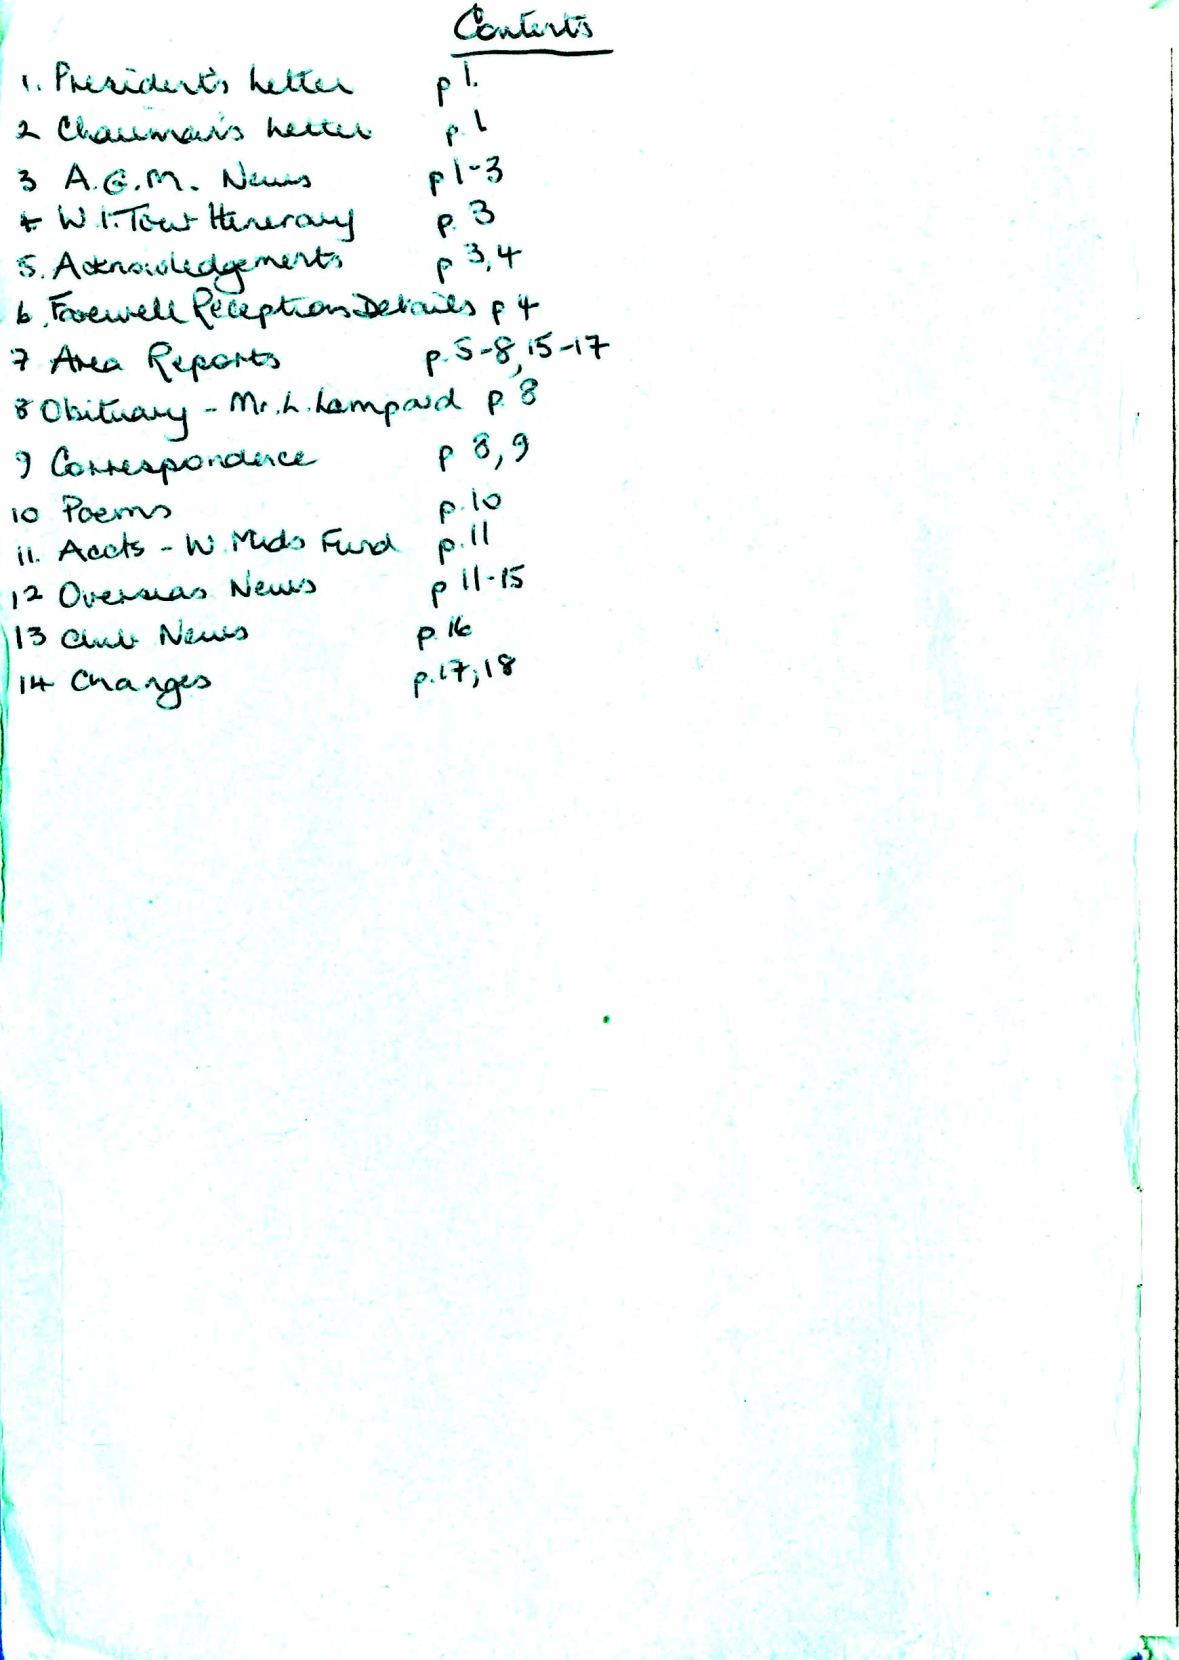 Contents
1. President's Letter p 1.
2 Chairman's Letter p. 1
3 A.G.M. News p 1-3
4. W.I. Tour Itinerary p. 3
5. Acknowledgements p 3,4
6. Farewell Receptions Details p 4
7 Area Reports p. 5-8, 15-17
8 Obituary - Mr. L. Lampard p. 8
9 Correspondence p 8, 9
10 Poems p. 10
11. Accts - W. Mids Fund p. 11
12 Overseas News p 11-15
13 Club News p. 16
14 Changes p. 17, 18